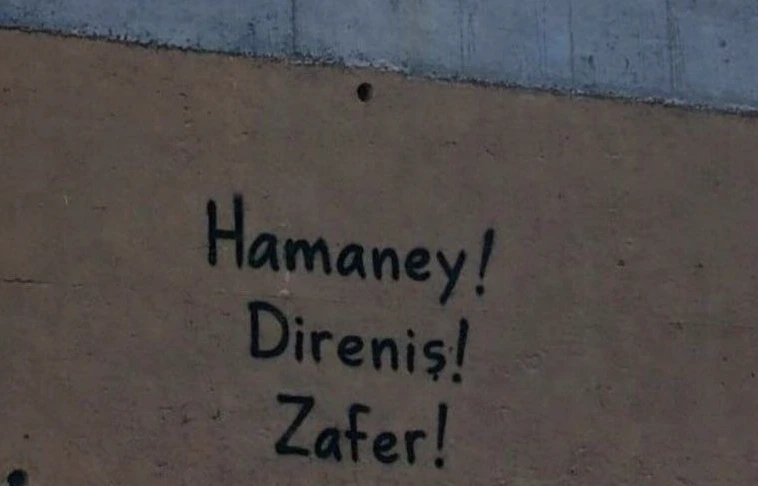 Hamaney!
Direniş!
Zafer!